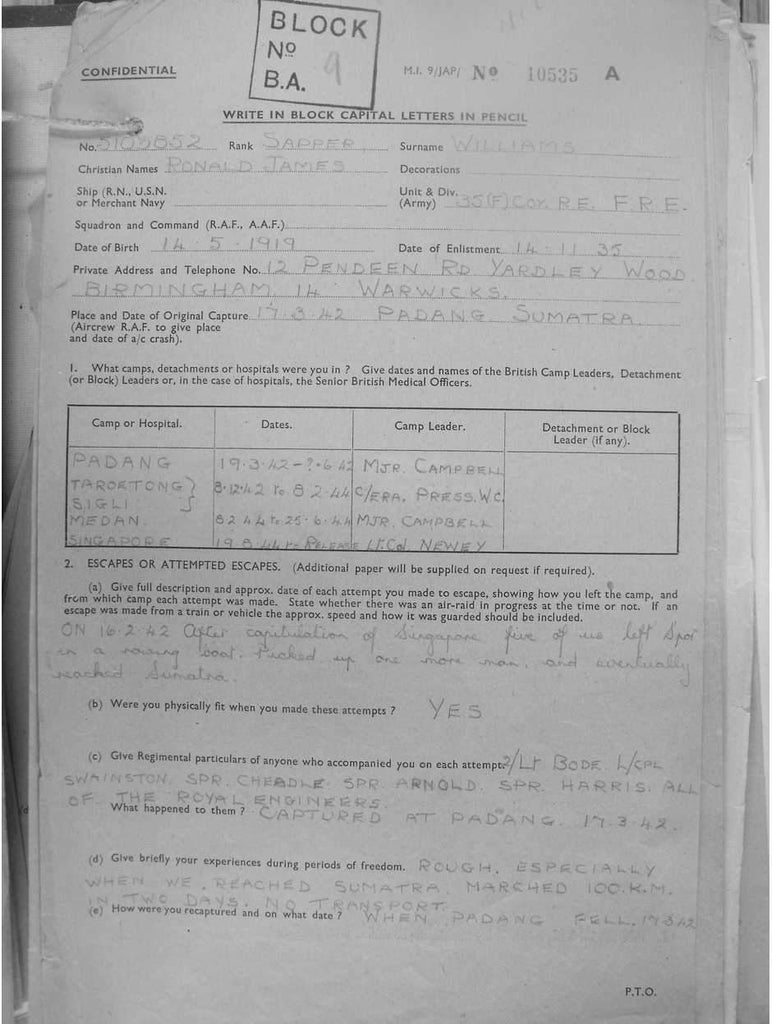 BLOCK
No
B.A. 9
CONFIDENTIAL
M.I. 9/JAP/ No 10535 A
WRITE IN BLOCK CAPITAL LETTERS IN PENCIL
No. Rank SAPPER Surname WILLIAMS
Christian Names RONALD JAMES Decorations
Ship (R.N., U.S.N. or Merchant Navy
Unit & Div. (Army) 35(F) COY. R.E. F.R.E.
Squadron and Command (R.A.F., A.A.F.)
Date of Birth 14.5.1919 Date of Enlistment 14.11.35
Private Address and Telephone No. 12 PENDEEN RD YARDLEY WOOD
BIRMINGHAM 14 WARWICKS.
Place and Date of Original Capture 17.3.42 PADANG. SUMATRA
(Aircrew R.A.F. to give place
and date of a/c crash).
1. What camps, detachments or hospitals were you in ? Give dates and names of the British Camp Leaders, Detachment
(or Block) Leaders or, in the case of hospitals, the Senior British Medical Officers.
Camp or Hospital. Dates. Camp Leader. Detachment or Block Leader (if any).
PADANG 19.3.42-?.6.42 MJR. CAMPBELL
TAROETONG } 8.12.42 to 8 2.44 C/ERA. PRESS. W.C.
SIGLI
MEDAN. 8 2 44 to 25.6.44 MJR. CAMPBELL
SINGAPORE 19.8.44 to RELEASE LT. COL. NEWEY
2. ESCAPES OR ATTEMPTED ESCAPES. (Additional paper will be supplied on request if required).
(a) Give full description and approx. date of each attempt you made to escape, showing how you left the camp, and
from which camp each attempt was made. State whether there was an air-raid in progress at the time or not. If an
escape was made from a train or vehicle the approx. speed and how it was guarded should be included.
ON 16.2.42 After capitulation of Singapore five of us left Spor
in a rowing boat. Picked up one more man, and eventually
reached Sumatra.
(b) Were you physically fit when you made these attempts ? YES
(c) Give Regimental particulars of anyone who accompanied you on each attempt? 2/Lt BODE L/CPL
SWAINSTON. SPR. CHEADLE. SPR ARNOLD. SPR. HARRIS. ALL
OF THE ROYAL ENGINEERS.
What happened to them ? CAPTURED AT PADANG. 17.3.42.
(d) Give briefly your experiences during periods of freedom. ROUGH. ESPECIALLY
WHEN WE REACHED SUMATRA. MARCHED 100.K.M.
IN TWO DAYS. NO TRANSPORT
(e) How were you recaptured and on what date ? WHEN PADANG FELL. 17 3 42
P.T.O.